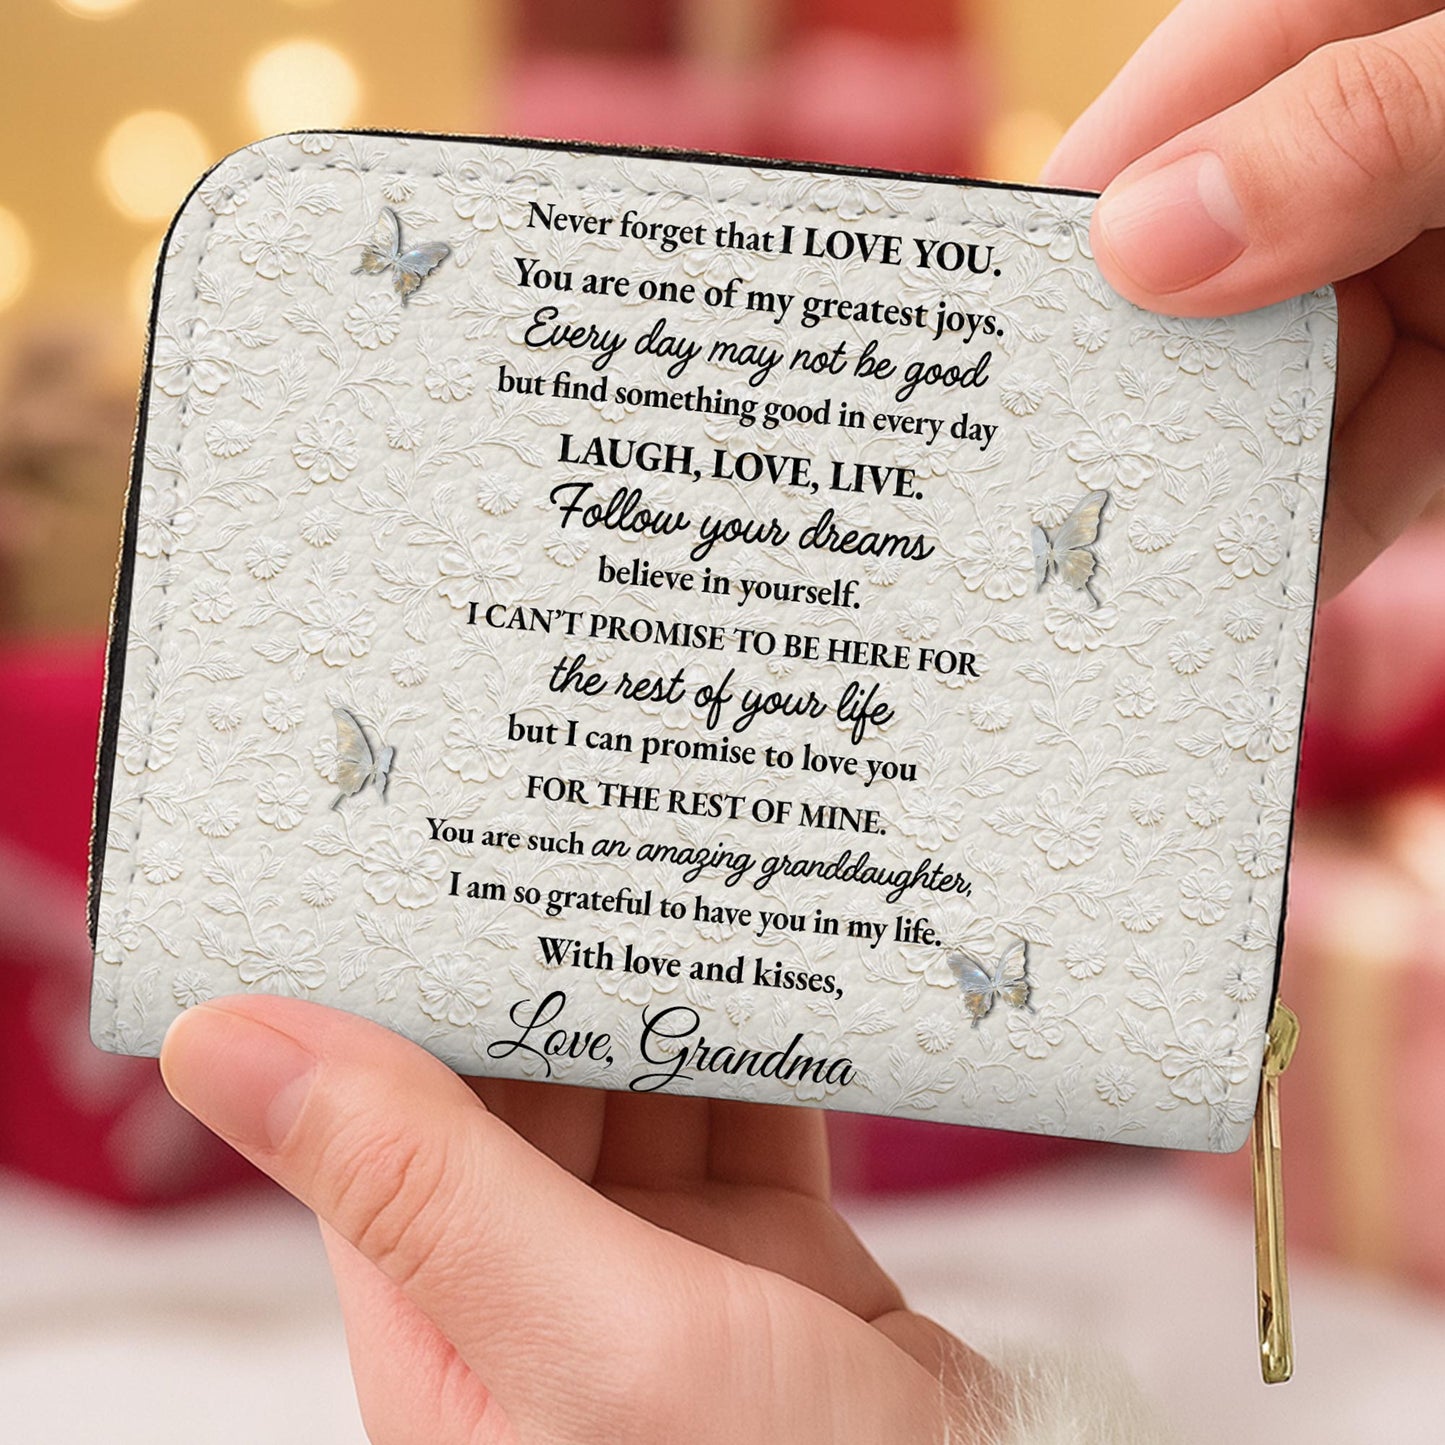 Never forget that I LOVE YOU.
You are one of my greatest joys.
Every day may not be good
but find something good in every day
LAUGH, LOVE, LIVE.
Follow your dreams
believe in yourself.
I CAN'T PROMISE TO BE HERE FOR
the rest of your life
but I can promise to love you
FOR THE REST OF MINE.
You are such an amazing granddaughter,
I am so grateful to have you in my life.
With love and kisses,
Love, Grandma